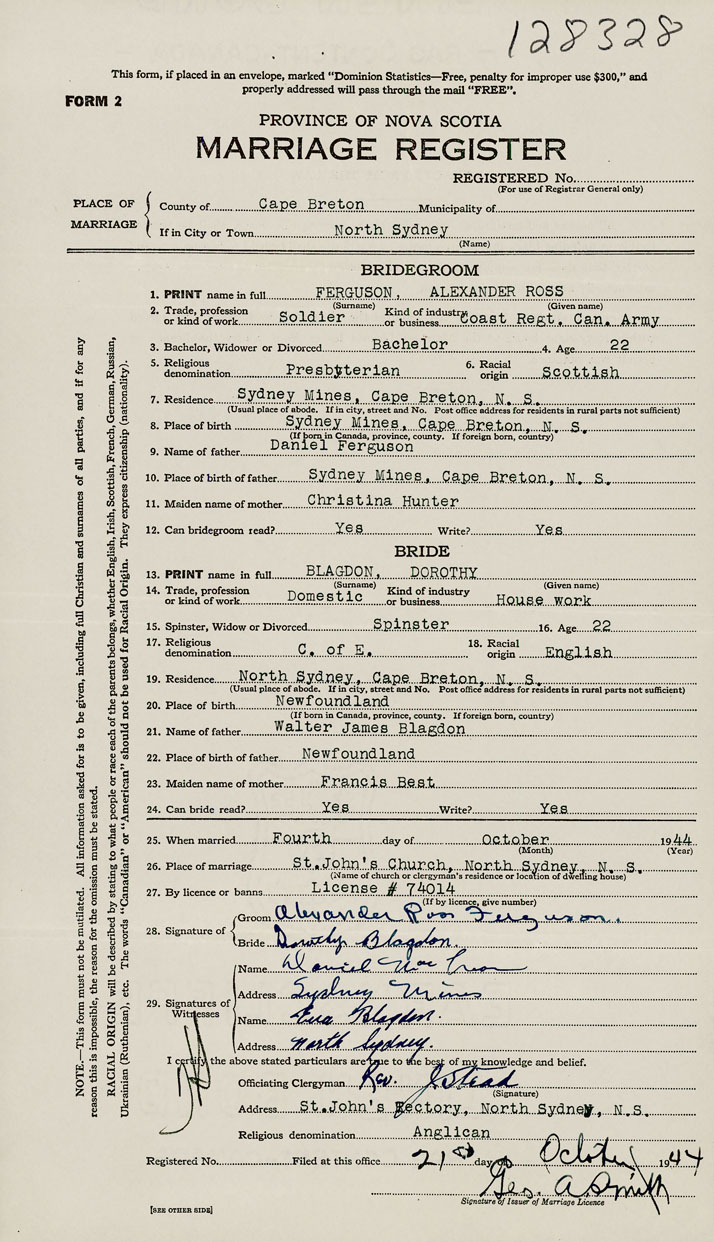 128328
This form, if placed in an envelope, marked "Dominion Statistics—Free, penalty for improper use $300," and
properly addressed will pass through the mail "FREE".
FORM 2
PROVINCE OF NOVA SCOTIA
MARRIAGE REGISTER
REGISTERED No.
(For use of Registrar General only)
PLACE OF MARRIAGE
County of Cape Breton Municipality of
If in City or Town North Sydney
(Name)
BRIDEGROOM
1. PRINT name in full FERGUSON, ALEXANDER ROSS
(Surname) (Given name)
2. Trade, profession or kind of work Soldier Kind of industry or business Coast Regt. Can. Army
3. Bachelor, Widower or Divorced Bachelor 4. Age 22
5. Religious denomination Presbyterian 6. Racial origin Scottish
7. Residence Sydney Mines, Cape Breton, N. S.
(Usual place of abode. If in city, street and No. Post office address for residents in rural parts not sufficient)
8. Place of birth Sydney Mines, Cape Breton, N. S.
(If born in Canada, province, county. If foreign born, country)
9. Name of father Daniel Ferguson
10. Place of birth of father Sydney Mines, Cape Breton, N. S.
11. Maiden name of mother Christina Hunter
12. Can bridegroom read? Yes Write? Yes
BRIDE
13. PRINT name in full BLAGDON, DOROTHY
(Surname) (Given name)
14. Trade, profession or kind of work Domestic Kind of industry or business House work
15. Spinster, Widow or Divorced Spinster 16. Age 22
17. Religious denomination C. of E. 18. Racial origin English
19. Residence North Sydney, Cape Breton, N. S.
(Usual place of abode. If in city, street and No. Post office address for residents in rural parts not sufficient)
20. Place of birth Newfoundland
(If born in Canada, province, county. If foreign born, country)
21. Name of father Walter James Blagdon
22. Place of birth of father Newfoundland
23. Maiden name of mother Francis Best
24. Can bride read? Yes Write? Yes
25. When married Fourth day of October 1944
(Month) (Year)
26. Place of marriage St.John's Church, North Sydney, N. S.
(Name of church or clergyman's residence or location of dwelling house)
27. By licence or banns License # 74014
(If by licence, give number)
28. Signature of
Groom Alexander Ross Ferguson.
Bride Dorothy Blagdon.
29. Signatures of Witnesses
Name Daniel
Address Sydney Mines
Name Eva Blagdon.
Address North Sydney.
I certify the above stated particulars are true to the best of my knowledge and belief.
Officiating Clergyman Rev. J. Stead
(Signature)
Address St.John's Rectory, North Sydney, N.S.
Religious denomination Anglican
Registered No. Filed at this office 21st day of October 1944
Geo. A Smith
Signature of Issuer of Marriage Licence
[SEE OTHER SIDE]
NOTE.—This form must not be mutilated. All information asked for is to be given, including full Christian and surnames of all parties, and if for any
reason this is impossible, the reason for the omission must be stated.
RACIAL ORIGIN will be described by stating to what people or race each of the parents belongs, whether English, Irish, Scottish, French, German, Russian,
Ukrainian (Ruthenian), etc. The words "Canadian" or "American" should not be used for Racial Origin. They express citizenship (nationality).